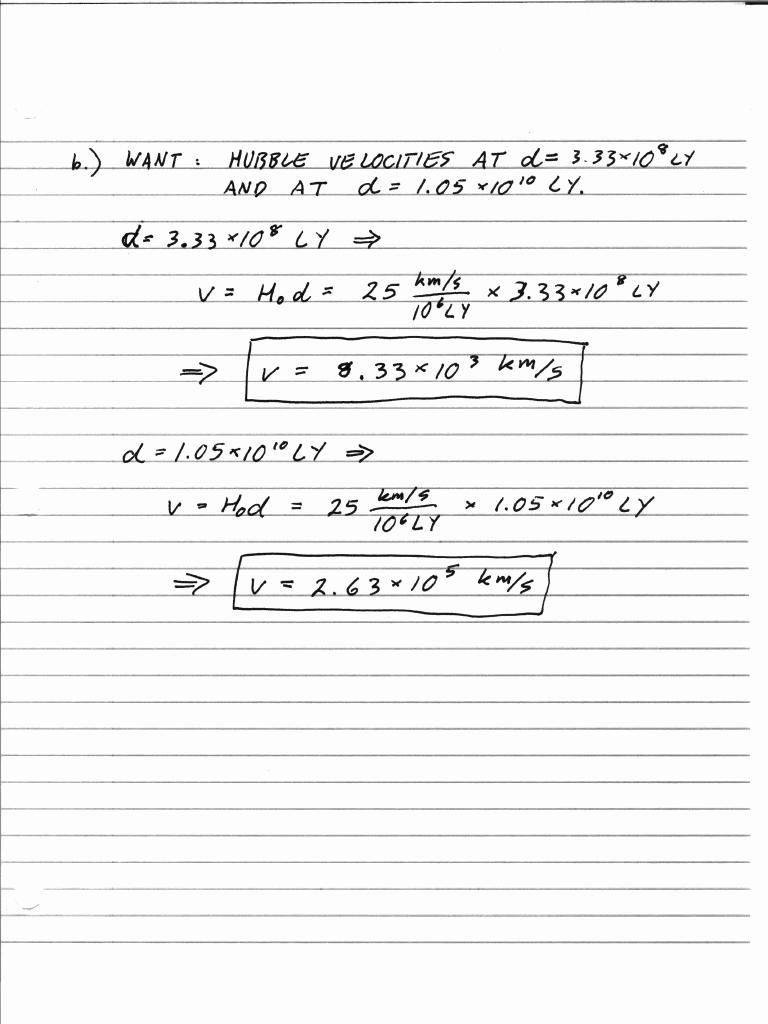 b.) WANT : HUBBLE VELOCITIES AT d = 3.33×10⁸ LY
AND AT d = 1.05 ×10¹⁰ LY.
d = 3.33 ×10⁸ LY ⇒
v = H₀ d = 25 (km/s)/(10⁶ LY) × 3.33×10⁸ LY
⇒ v = 8.33×10³ km/s
d = 1.05×10¹⁰ LY ⇒
v = H₀d = 25 (km/s)/(10⁶ LY) × 1.05×10¹⁰ LY
⇒ v = 2.63×10⁵ km/s